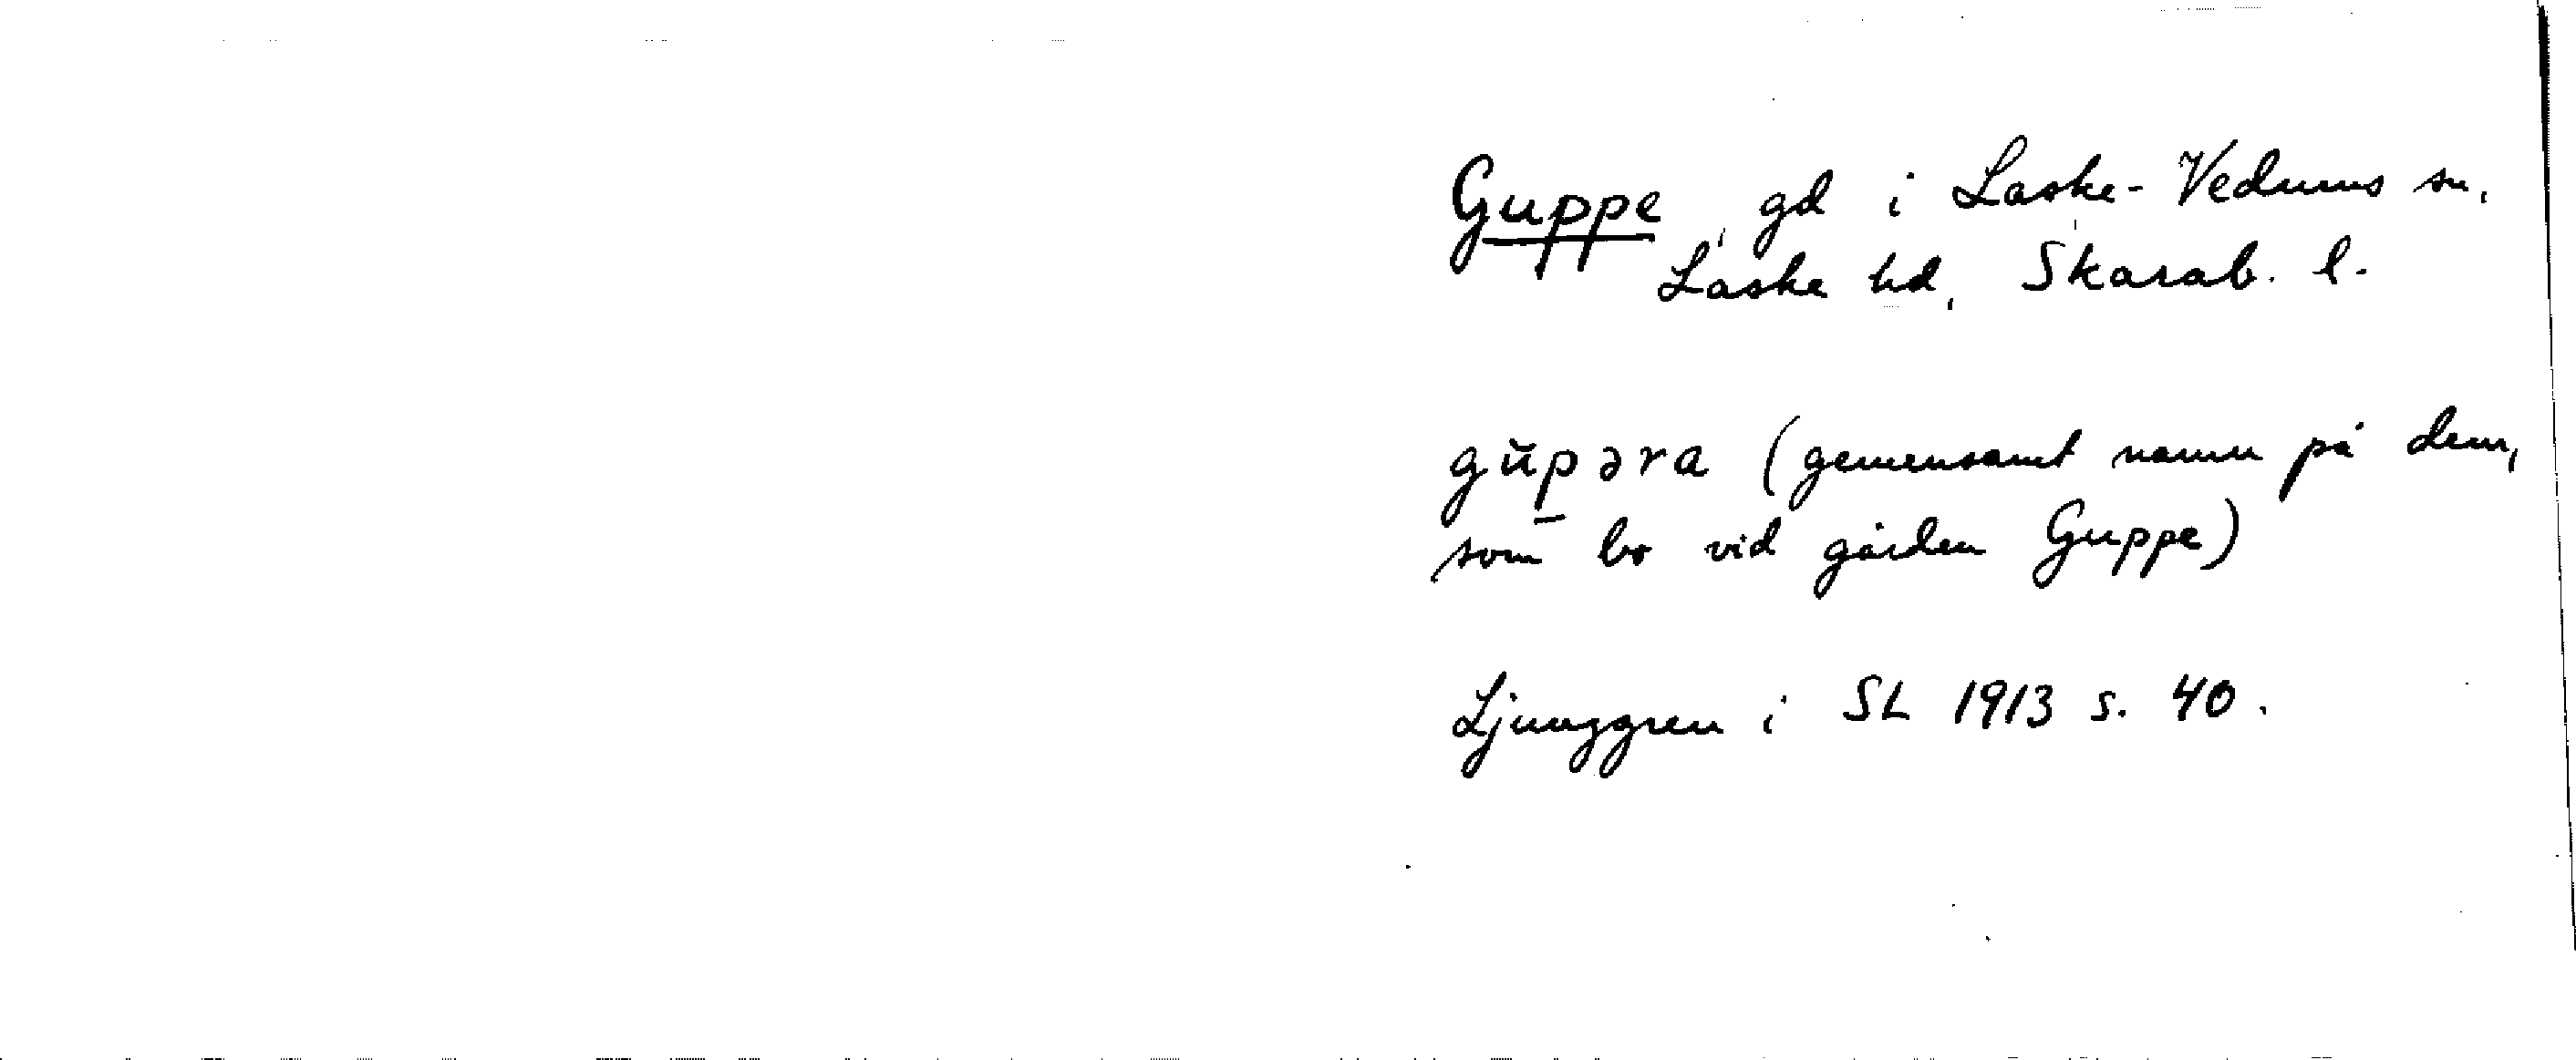 Guppe, gd i Laske-Vedums sn,
Laske hd, Skarab. l.
gŭp̱əra (gemensamt namn på dem,
som bo vid gården Guppe)
Ljunggren i SL 1913 s. 40.